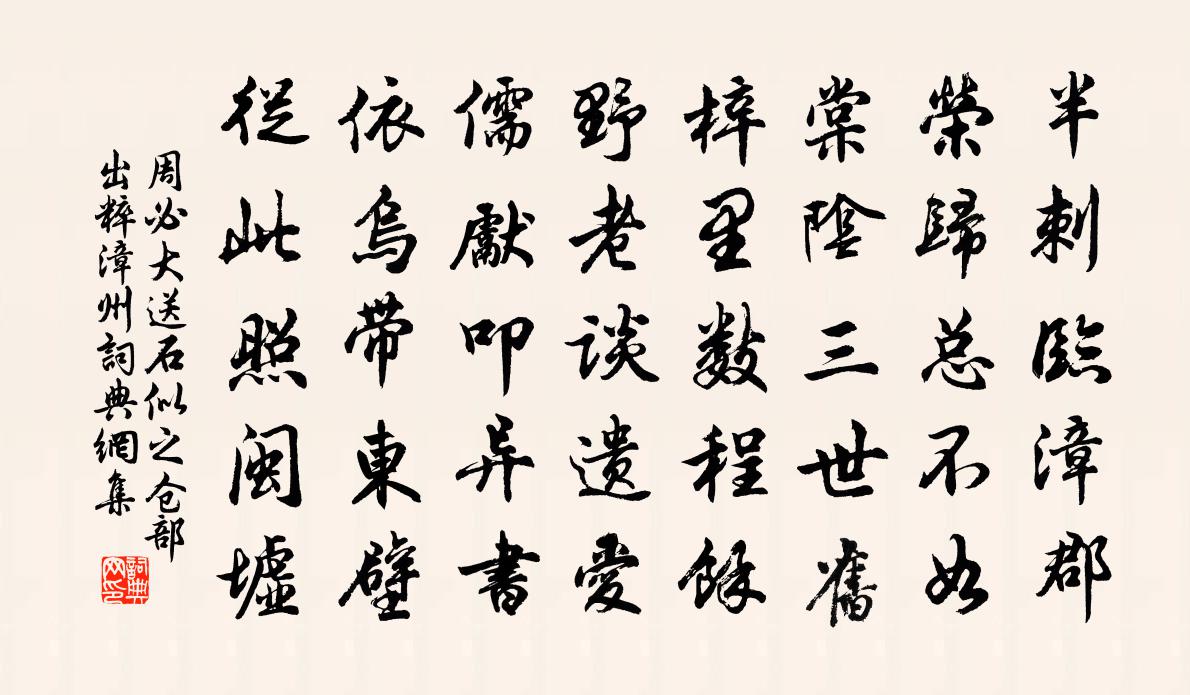 半刺臨漳郡
榮歸总不如
棠陰三世舊
梓里數程餘
野老談遺愛
儒獻叩异書
依烏帶東壁
從此照閩墟
周必大送石似之仓部
出粹漳州詞典網集
詞典网印